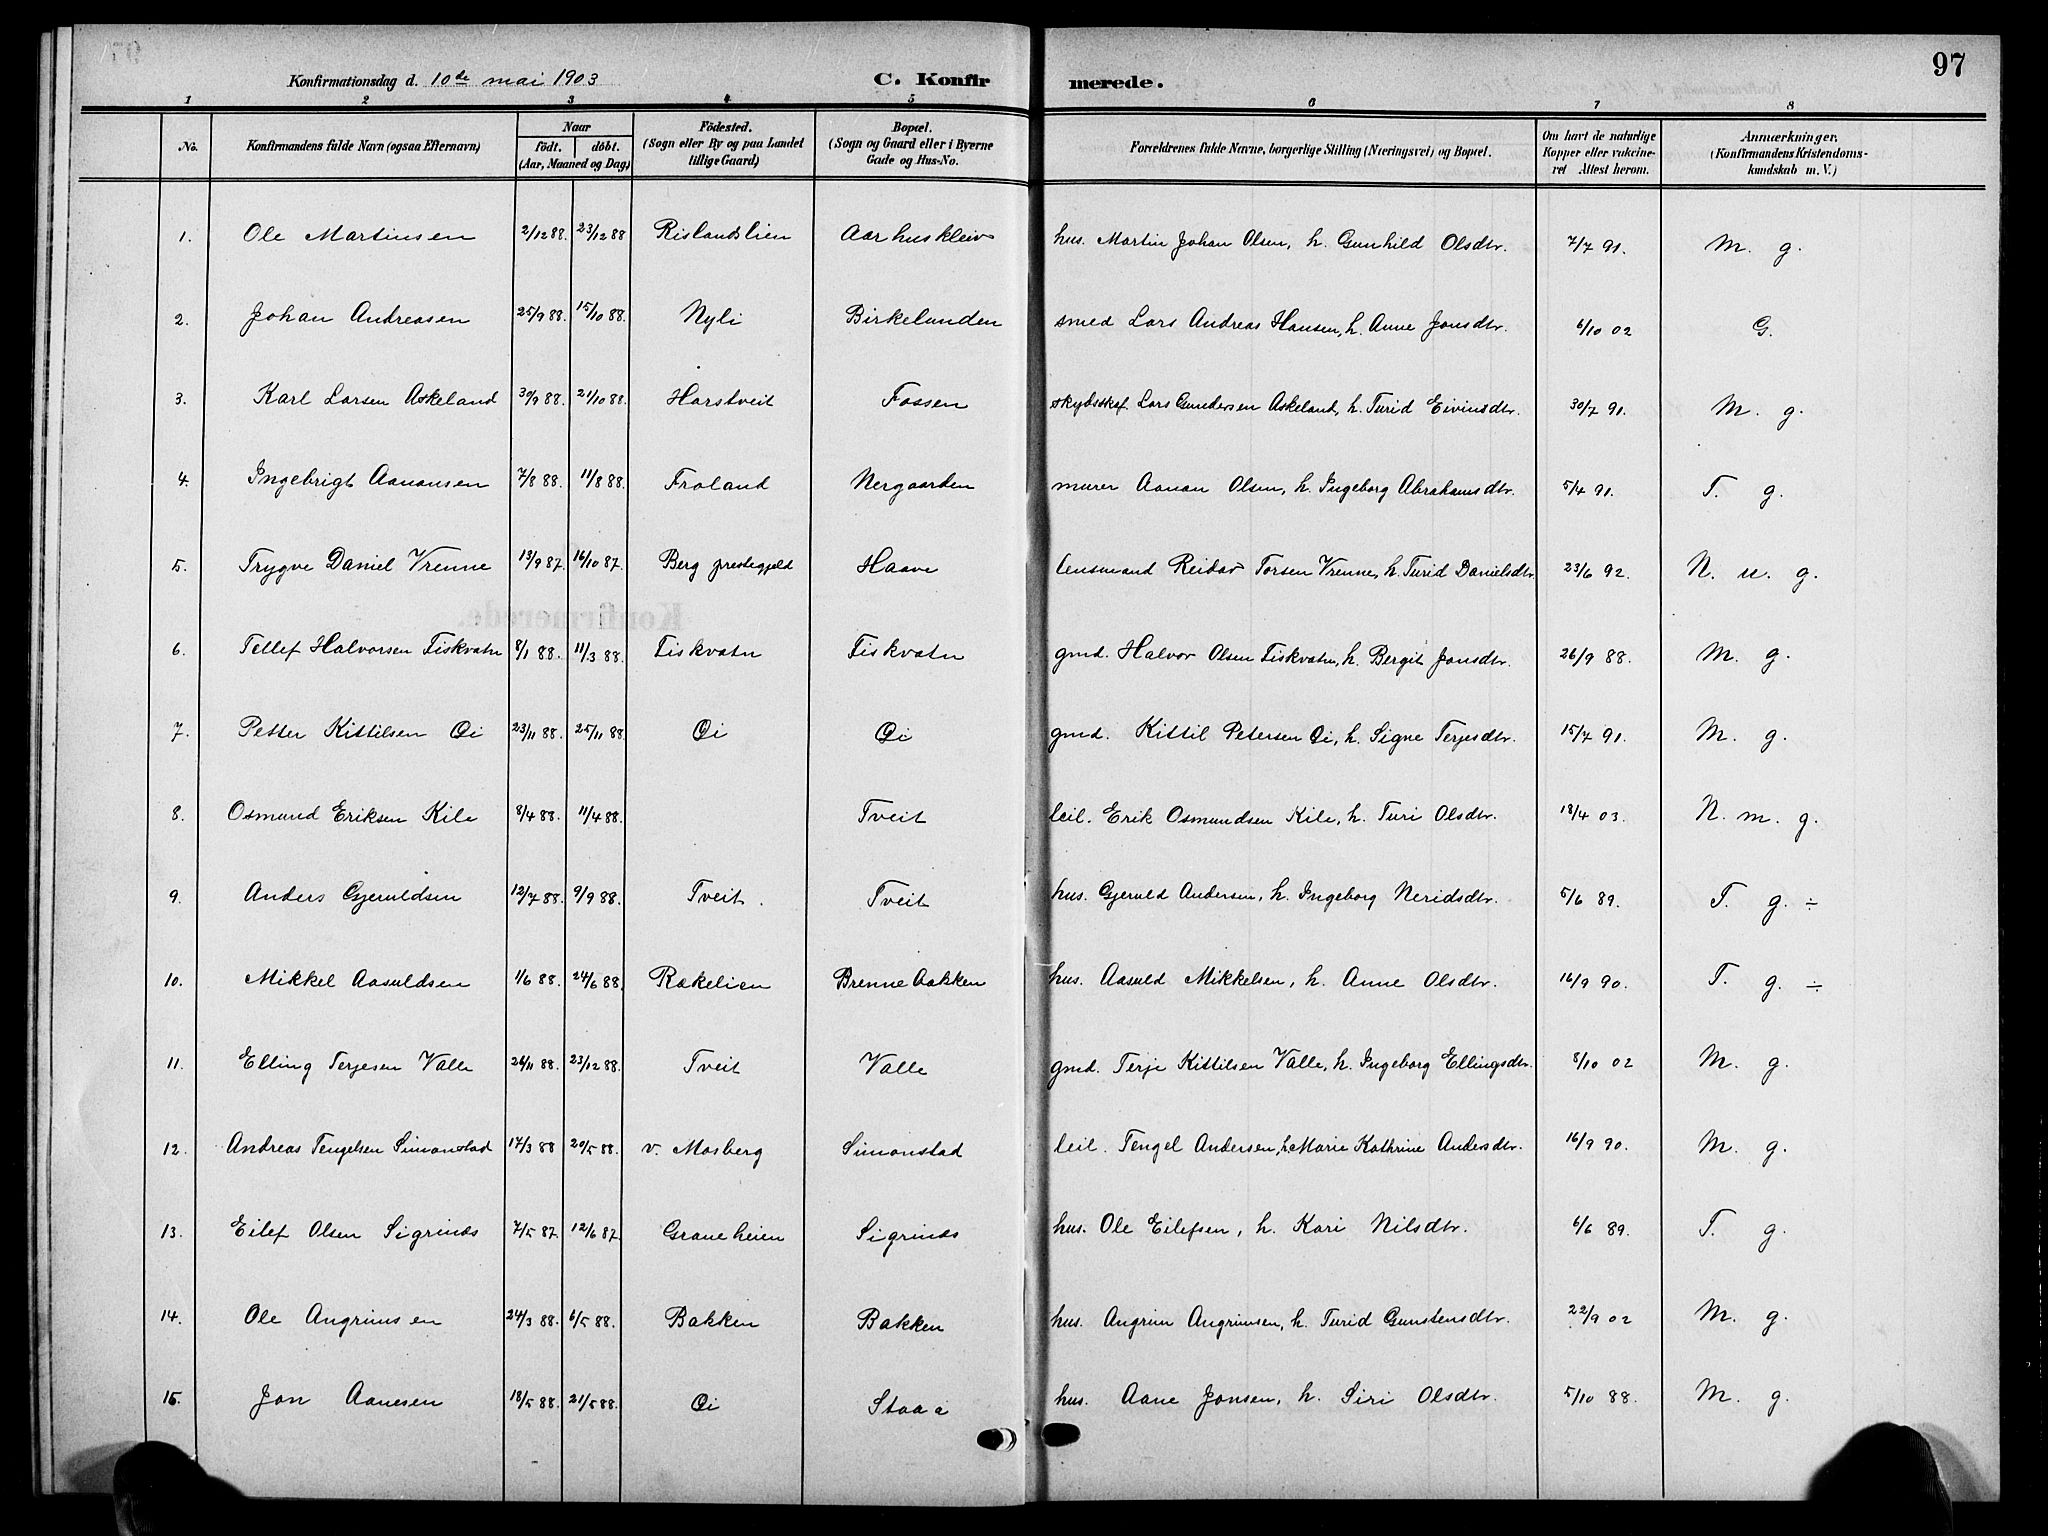 97
Konfirmationsdag d. 10de mai 1903 C. Konfirmerede.
1 2 3 4 5 6 7 8
No. Konfirmandens fulde Navn (ogsaa Efternavn) Naar födt. döbt. (Aar, Maaned og Dag) Födested. (Sogn eller By og paa Landet tillige Gaard) Bopæl. (Sogn og Gaard eller i Byerne Gade og Hus-No. Forældrenes fulde Navne, borgerlige Stilling (Næringsvei) og Bopæl. Om havt de naturlige Kopper eller vakcineret Attest herom. Anmærkninger. (Konfirmandens Kristendomskundskab m. V.)
1. Ole Martinsen 2/12 88. 23/12 88 Rislandslien Aarhuskleiv hus. Martin Johan Olsen, h. Gunhild Olsdtr. 7/7 91. M. g.
2. Johan Andreasen 25/9 88. 15/10 88. Nyli Birkelunden smed Lars Andreas Hansen, h. Anne Jonsdtr. 6/10 02 G.
3. Karl Larsen Askeland 30/9 88. 21/10 88. Harstveit Fossen skydsskaf. Lars Gundersen Askeland, h. Turid Eivinsdtr. 30/7 91. M. g.
4. Ingebrigt Aanonsen 7/8 88. 11/8 88. Froland Nergaarden murer Aanon Olsen, h. Ingeborg Abrahamsdtr. 5/4 91. T. g.
5. Trygve Daniel Vrenne 13/9 87. 16/10 87. Berg prestegjeld Haave lensmand Reidar Torsen Vrenne, h. Turid Danielsdtr. 23/6 92. N. u. g.
6. Tellef Halvorsen Fiskvatn 8/1 88. 11/3 88. Fiskvatn Fiskvatn gmd. Halvor Olsen Fiskvatn, h. Bergit Jonsdtr. 26/9 88. M. g.
7. Petter Kittilsen Øi 23/11 88. 25/11 88. Øi Øi gmd. Kittil Petersen Øi, h. Signe Terjesdtr. 15/7 91. M. g.
8. Osmund Eriksen Kile 8/4 88. 11/4 88. Tveit leil. Erik Osmundsen Kile, h. Turi Olsdtr. 18/4 03. N. m. g.
9. Anders Gjeruldsen 12/7 88. 9/9 88. Tveit. Tveit hus. Gjeruld Andersen, h. Ingeborg Neridsdtr. 5/6 89. T. g. ÷
10. Mikkel Aasuldsen 1/6 88. 24/6 88. Rækelien Brennebakken hus. Aasuld Mikkelsen, h. Anne Olsdtr. 16/9 90. T. g. ÷
11. Elling Terjesen Valle 26/11 88. 23/12 88. Tveit Valle gmd. Terje Kittilsen Valle, h. Ingeborg Ellingsdtr. 8/10 02 M. g.
12. Andreas Tengelsen Simonstad 17/3 88 20/5 88. v. Mosberg Simonstad leil. Tengel Andersen, h. Marie Kathrine Andersdtr. 16/9 90. M. g.
13. Eilef Olsen Sigrinds 7/5 87. 12/6 87. Graneheien Sigrinds hus. Ole Eilefsen, h. Kari Nilsdtr. 6/6 89. T. g.
14. Ole Angrimsen 24/3 88. 6/5 88. Bakken Bakken hus. Angrim Angrimsen, h. Turid Gunstensdtr. 22/9 02 M. g.
15. Jon Aanesen 18/5 88. 21/5 88. Øi Staaa hus. Aane Jonsen, h. Siri Olsdtr. 5/10 88. M. g.